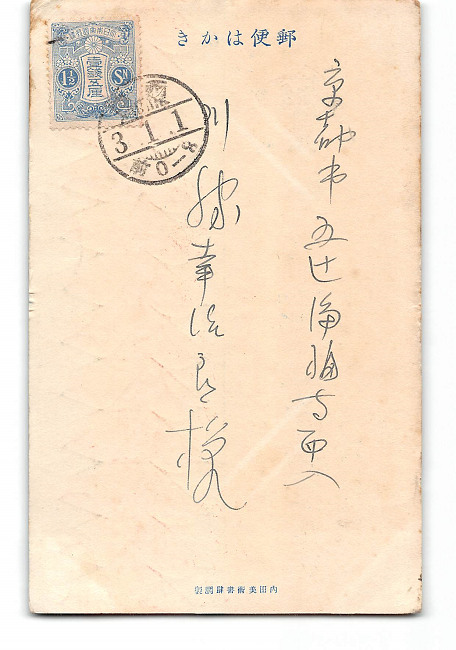 郵便はかき
京都市五辻浄福寺西入
川勝幸次郎様
大日本帝國郵便
壹錢五厘
1½ Sn
3.1.1
内田美術書肆調製